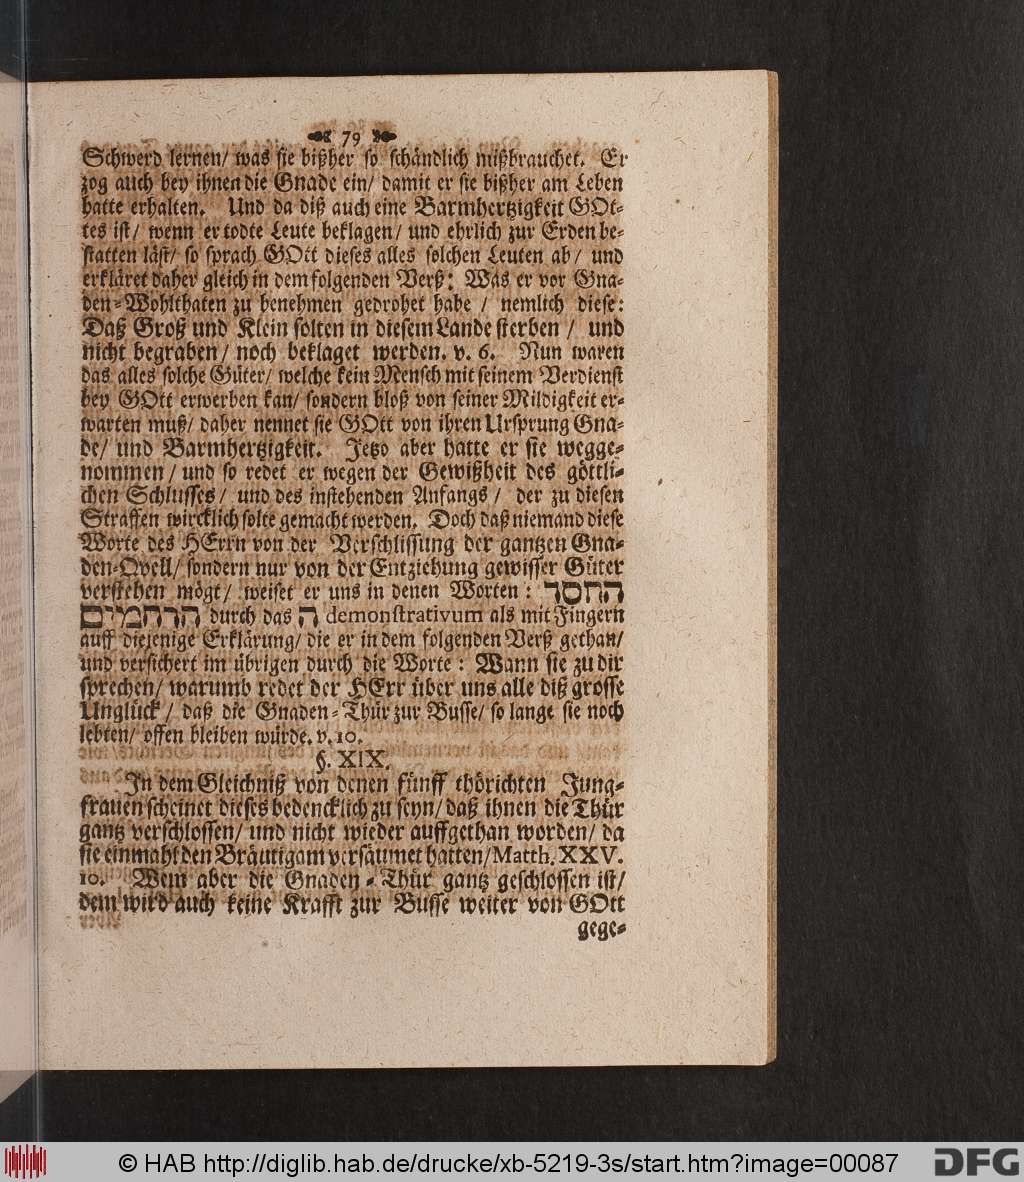 79
Schwerd lernen/ was sie bißher so schändlich mißbrauchet. Er
zog auch bey ihnen die Gnade ein/ damit er sie bißher am Leben
hatte erhalten. Und da diß auch eine Barmhertzigkeit GOt-
tes ist/ wenn er todte Leute beklagen/ und ehrlich zur Erden be-
statten läst/ so sprach GOtt dieses alles solchen Leuten ab/ und
erkläret daher gleich in dem folgenden Verß: Was er vor Gna-
den-Wohlthaten zu benehmen gedrohet habe / nemlich diese:
Daß Groß und Klein solten in diesem Lande sterben / und
nicht begraben/ noch beklaget werden. v. 6. Nun waren
das alles solche Güter/ welche kein Mensch mit seinem Verdienst
bey GOtt erwerben kan/ sondern bloß von seiner Mildigkeit er-
warten muß/ daher nennet sie GOtt von ihren Ursprung Gna-
de/ und Barmhertzigkeit. Jetzo aber hatte er sie wegge-
nommen/ und so redet er wegen der Gewißheit des göttli-
chen Schlusses/ und des instehenden Anfangs/ der zu diesen
Straffen wircklich solte gemacht werden. Doch daß niemand diese
Worte des HErrn von der Verschlissung der gantzen Gna-
den-Qvell/ sondern nur von der Entziehung gewisser Güter
verstehen mögt/ weiset er uns in denen Worten: החסד
הרחמים durch das ה demonstrativum als mit Fingern
auff diejenige Erklärung/ die er in dem folgenden Verß gethan/
und versichert im übrigen durch die Worte: Wann sie zu dir
sprechen/ warumb redet der HErr über uns alle diß grosse
Unglück/ daß die Gnaden-Thür zur Busse/ so lange sie noch
lebten/ offen bleiben würde. v. 10.
§. XIX.
In dem Gleichniß von denen fünff thörichten Jung-
frauen scheinet dieses bedencklich zu seyn/ daß ihnen die Thür
gantz verschlossen/ und nicht wieder auffgethan worden/ da
sie einmahl den Bräutigam versäumet hatten/ Matth. XXV.
10. Wem aber die Gnaden-Thür gantz geschlossen ist/
dem wird auch keine Krafft zur Busse weiter von GOtt
gege-
© HAB http://diglib.hab.de/drucke/xb-5219-3s/start.htm?image=00087
DFG